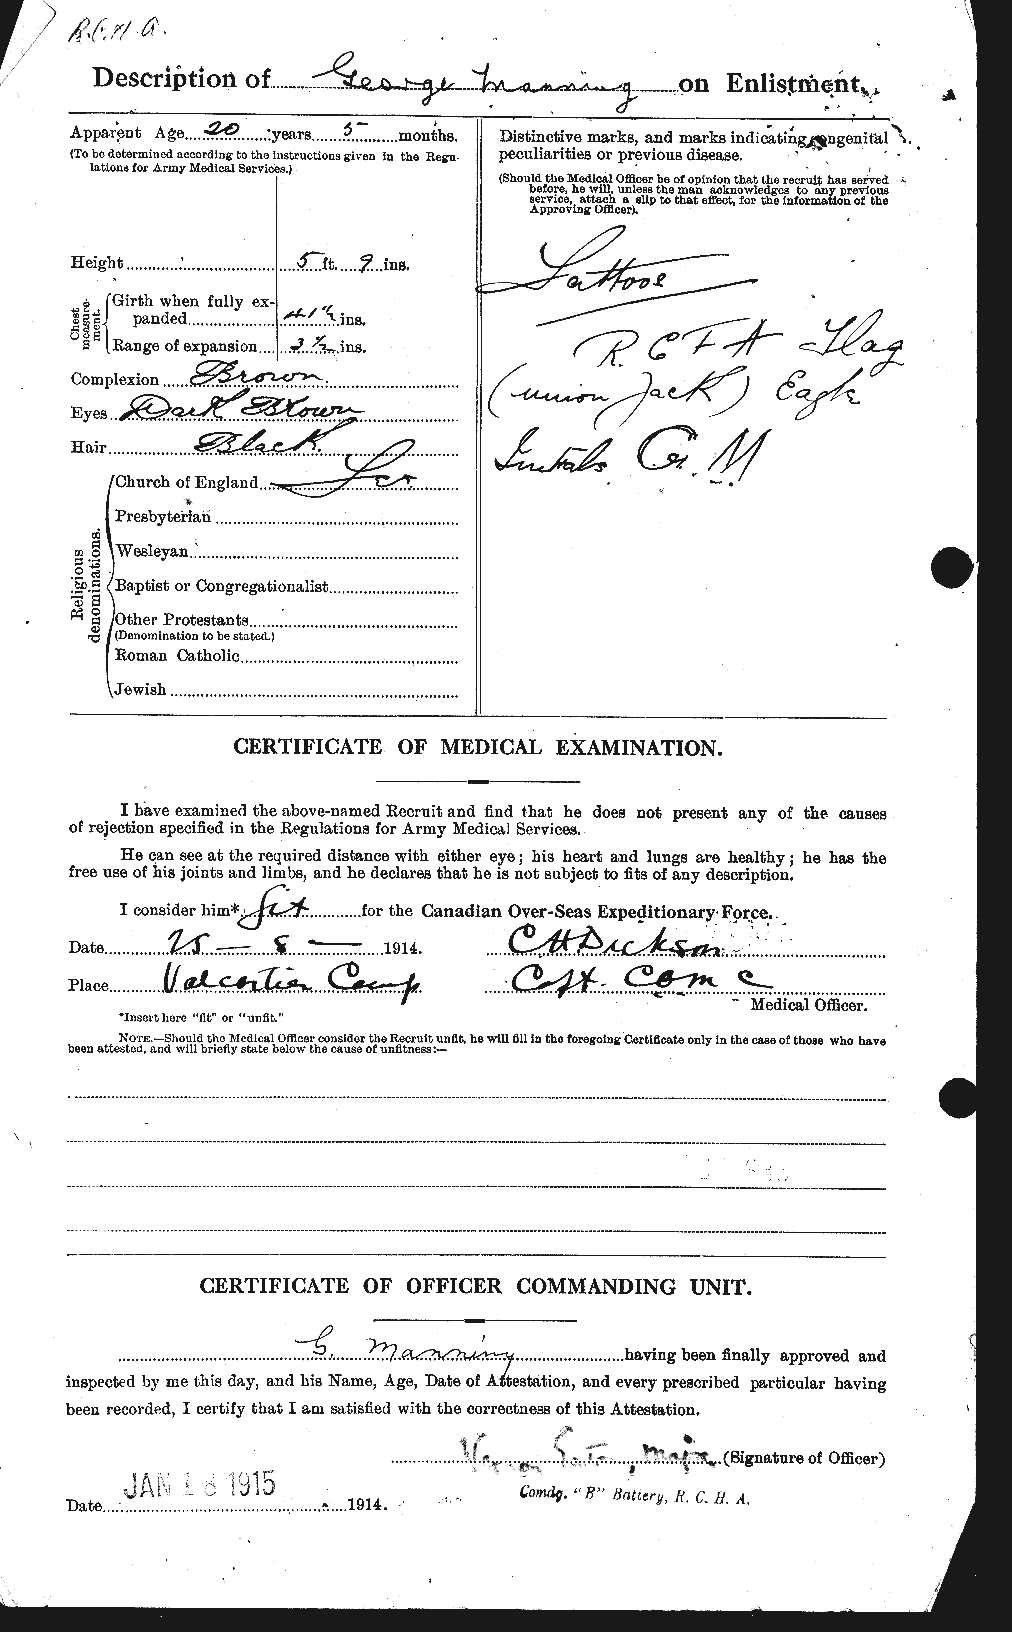 R.C.H.A.
Description of George Manning on Enlistment.
Apparent Age 20 years 5 months.
(To be determined according to the instructions given in the Regu-
lations for Army Medical Services.)
Height 5 ft. 9 ins.
Chest measure-
ment.
Girth when fully ex-
panded 41 ½ ins.
Range of expansion 3 ½ ins.
Complexion Brown.
Eyes Dark Brown
Hair Black.
Religious
denominations.
Church of England Yes
Presbyterian
Wesleyan
Baptist or Congregationalist
Other Protestants
(Denomination to be stated.)
Roman Catholic
Jewish
Distinctive marks, and marks indicating congenital
peculiarities or previous disease.
(Should the Medical Officer be of opinion that the recruit has served
before, he will, unless the man acknowledges to any previous
service, attach a slip to that effect, for the information of the
Approving Officer).
Tattoos
R C F A Flag
(union Jack) Eagle
Initials G. M
CERTIFICATE OF MEDICAL EXAMINATION.
I have examined the above-named Recruit and find that he does not present any of the causes
of rejection specified in the Regulations for Army Medical Services.
He can see at the required distance with either eye; his heart and lungs are healthy; he has the
free use of his joints and limbs, and he declares that he is not subject to fits of any description.
I consider him* fit for the Canadian Over-Seas Expeditionary Force.
Date 25 — 8 — 1914. C H Dickson
Place Valcartier Camp Capt. C A M C
Medical Officer.
*Insert here "fit" or "unfit."
NOTE.—Should the Medical Officer consider the Recruit unfit, he will fill in the foregoing Certificate only in the case of those who have
been attested, and will briefly state below the cause of unfitness:—
CERTIFICATE OF OFFICER COMMANDING UNIT.
G. Manning having been finally approved and
inspected by me this day, and his Name, Age, Date of Attestation, and every prescribed particular having
been recorded, I certify that I am satisfied with the correctness of this Attestation.
Vernon Eaton, Major (Signature of Officer)
Comdg. "B" Battery, R. C. H. A.
JAN 18 1915
Date 1914.